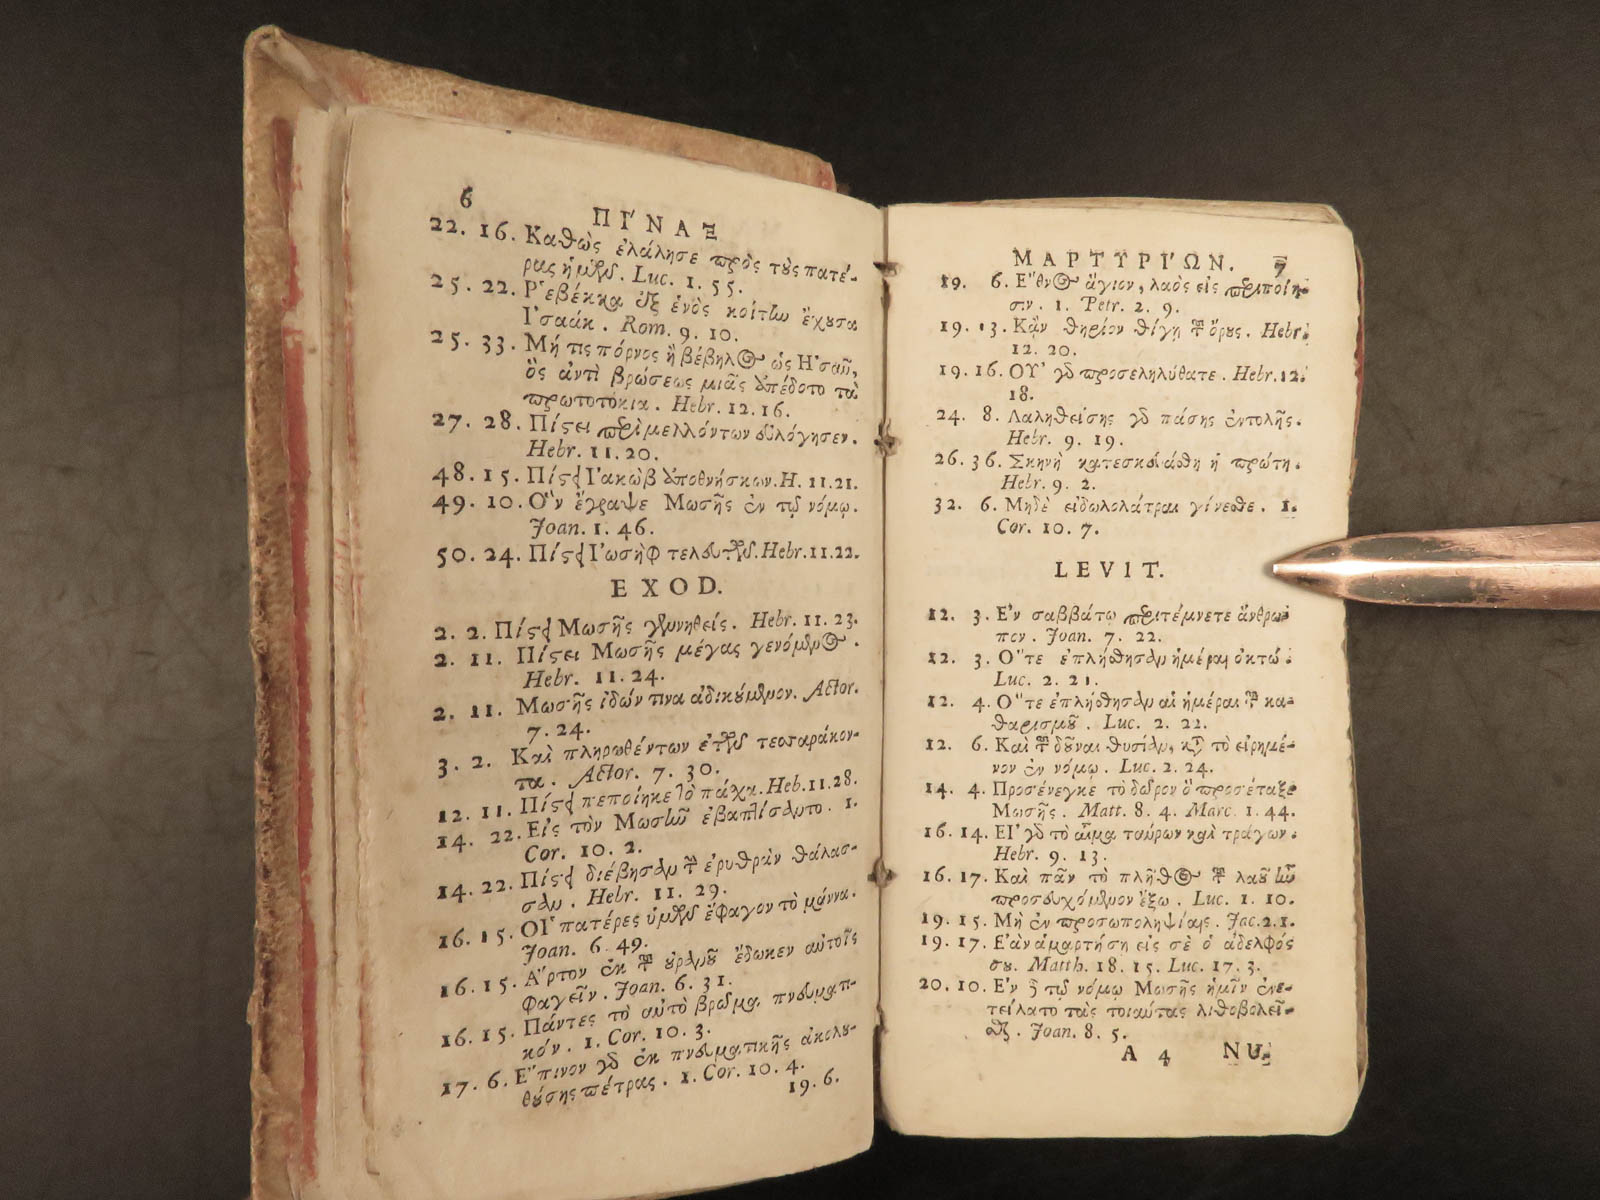 6
ΠΙ´ΝΑΞ
22. 16. Καθὼς ἐλάλησε πρὸς τοὺς πατέ-
ρας ἡμῶν. Luc. 1. 55.
25. 22. Ρ῾εβέκκα ἐξ ἑνὸς κοίτην ἔχουσα
Ι᾿σαάκ. Rom. 9. 10.
25. 33. Μή τις πόρνος ἢ βέβηλος ὡς Η᾿σαῦ,
ὃς ἀντὶ βρώσεως μιᾶς ἀπέδοτο τὰ
πρωτοτόκια. Hebr. 12. 16.
27. 28. Πίστει περὶ μελλόντων εὐλόγησεν.
Hebr. 11. 20.
48. 15. Πίστει Ι᾿ακὼβ ἀποθνήσκων. H. 11.21.
49. 10. Ο῝ν ἔγραψε Μωσῆς ἐν τῷ νόμῳ.
Joan. 1. 46.
50. 24. Πίστει Ι᾿ωσὴφ τελευτῶν. Hebr. 11. 22.
EXOD.
2. 2. Πίστει Μωσῆς γεννηθείς. Hebr. 11. 23.
2. 11. Πίστει Μωσῆς μέγας γενόμενος.
Hebr. 11. 24.
2. 11. Μωσῆς ἰδών τινα ἀδικούμενον. Actor.
7. 24.
3. 2. Καὶ πληρωθέντων ἐτῶν τεσσαράκον-
τα. Actor. 7. 30.
12. 11. Πίστει πεποίηκε τὸ πάσχα. Heb. 11. 28.
14. 22. Εἰς τὸν Μωσῆν ἐβαπτίσαντο. 1.
Cor. 10. 2.
14. 22. Πίστει διέβησαν τὴν ἐρυθρὰν θάλασ-
σαν. Hebr. 11. 29.
16. 15. Οἱ πατέρες ὑμῶν ἔφαγον τὸ μάννα.
Joan. 6. 49.
16. 15. Α῎ρτον ἐκ τοῦ οὐρανοῦ ἔδωκεν αὐτοῖς
φαγεῖν. Joan. 6. 31.
16. 15. Πάντες τὸ αὐτὸ βρῶμα πνευματι-
κόν. 1. Cor. 10. 3.
17. 6. Ε῎πινον γὰρ ἐκ πνευματικῆς ἀκολου-
θούσης πέτρας. 1. Cor. 10. 4.
19. 6.
ΜΑΡΤΥΡΙ´ΩΝ. 7
19. 6. Ε῎θνος ἅγιον, λαὸς εἰς περιποίη-
σιν. 1. Petr. 2. 9.
19. 13. Κἂν θηρίον θίγῃ τοῦ ὄρους. Hebr.
12. 20.
19. 16. ΟΥ᾿ γὰρ προσεληλύθατε. Hebr. 12.
18.
24. 8. Λαληθείσης γὰρ πάσης ἐντολῆς.
Hebr. 9. 19.
26. 36. Σκηνὴ κατεσκευάσθη ἡ πρώτη.
Hebr. 9. 2.
32. 6. Μηδὲ εἰδωλολάτραι γίνεσθε. 1.
Cor. 10. 7.
LEVIT.
12. 3. Ε᾿ν σαββάτῳ περιτέμνετε ἄνθρω-
πον. Joan. 7. 22.
12. 3. Ο῞τε ἐπλήσθησαν ἡμέραι ὀκτώ.
Luc. 2. 21.
12. 4. Ο῞τε ἐπλήσθησαν αἱ ἡμέραι τοῦ κα-
θαρισμοῦ. Luc. 2. 22.
12. 6. Καὶ τοῦ δοῦναι θυσίαν, κατὰ τὸ εἰρημέ-
νον ἐν νόμῳ. Luc. 2. 24.
14. 4. Προσένεγκε τὸ δῶρον ὃ προσέταξε
Μωσῆς. Matt. 8. 4. Marc. 1. 44.
16. 14. ΕΙ᾿ γὰρ τὸ αἷμα ταύρων καὶ τράγων.
Hebr. 9. 13.
16. 17. Καὶ πᾶν τὸ πλῆθος τοῦ λαοῦ ἦν
προσευχόμενον ἔξω. Luc. 1. 10.
19. 15. Μὴ ἐν προσωποληψίαις. Jac. 2. 1.
19. 17. Ε᾿ὰν ἁμαρτήσῃ εἰς σὲ ὁ ἀδελφός
σου. Matth. 18. 15. Luc. 17. 3.
20. 10. Ε᾿ν δὲ τῷ νόμῳ Μωσῆς ἡμῖν ἐνε-
τείλατο τὰς τοιαύτας λιθοβολεῖ-
σθαι. Joan. 8. 5.
A 4 NU-